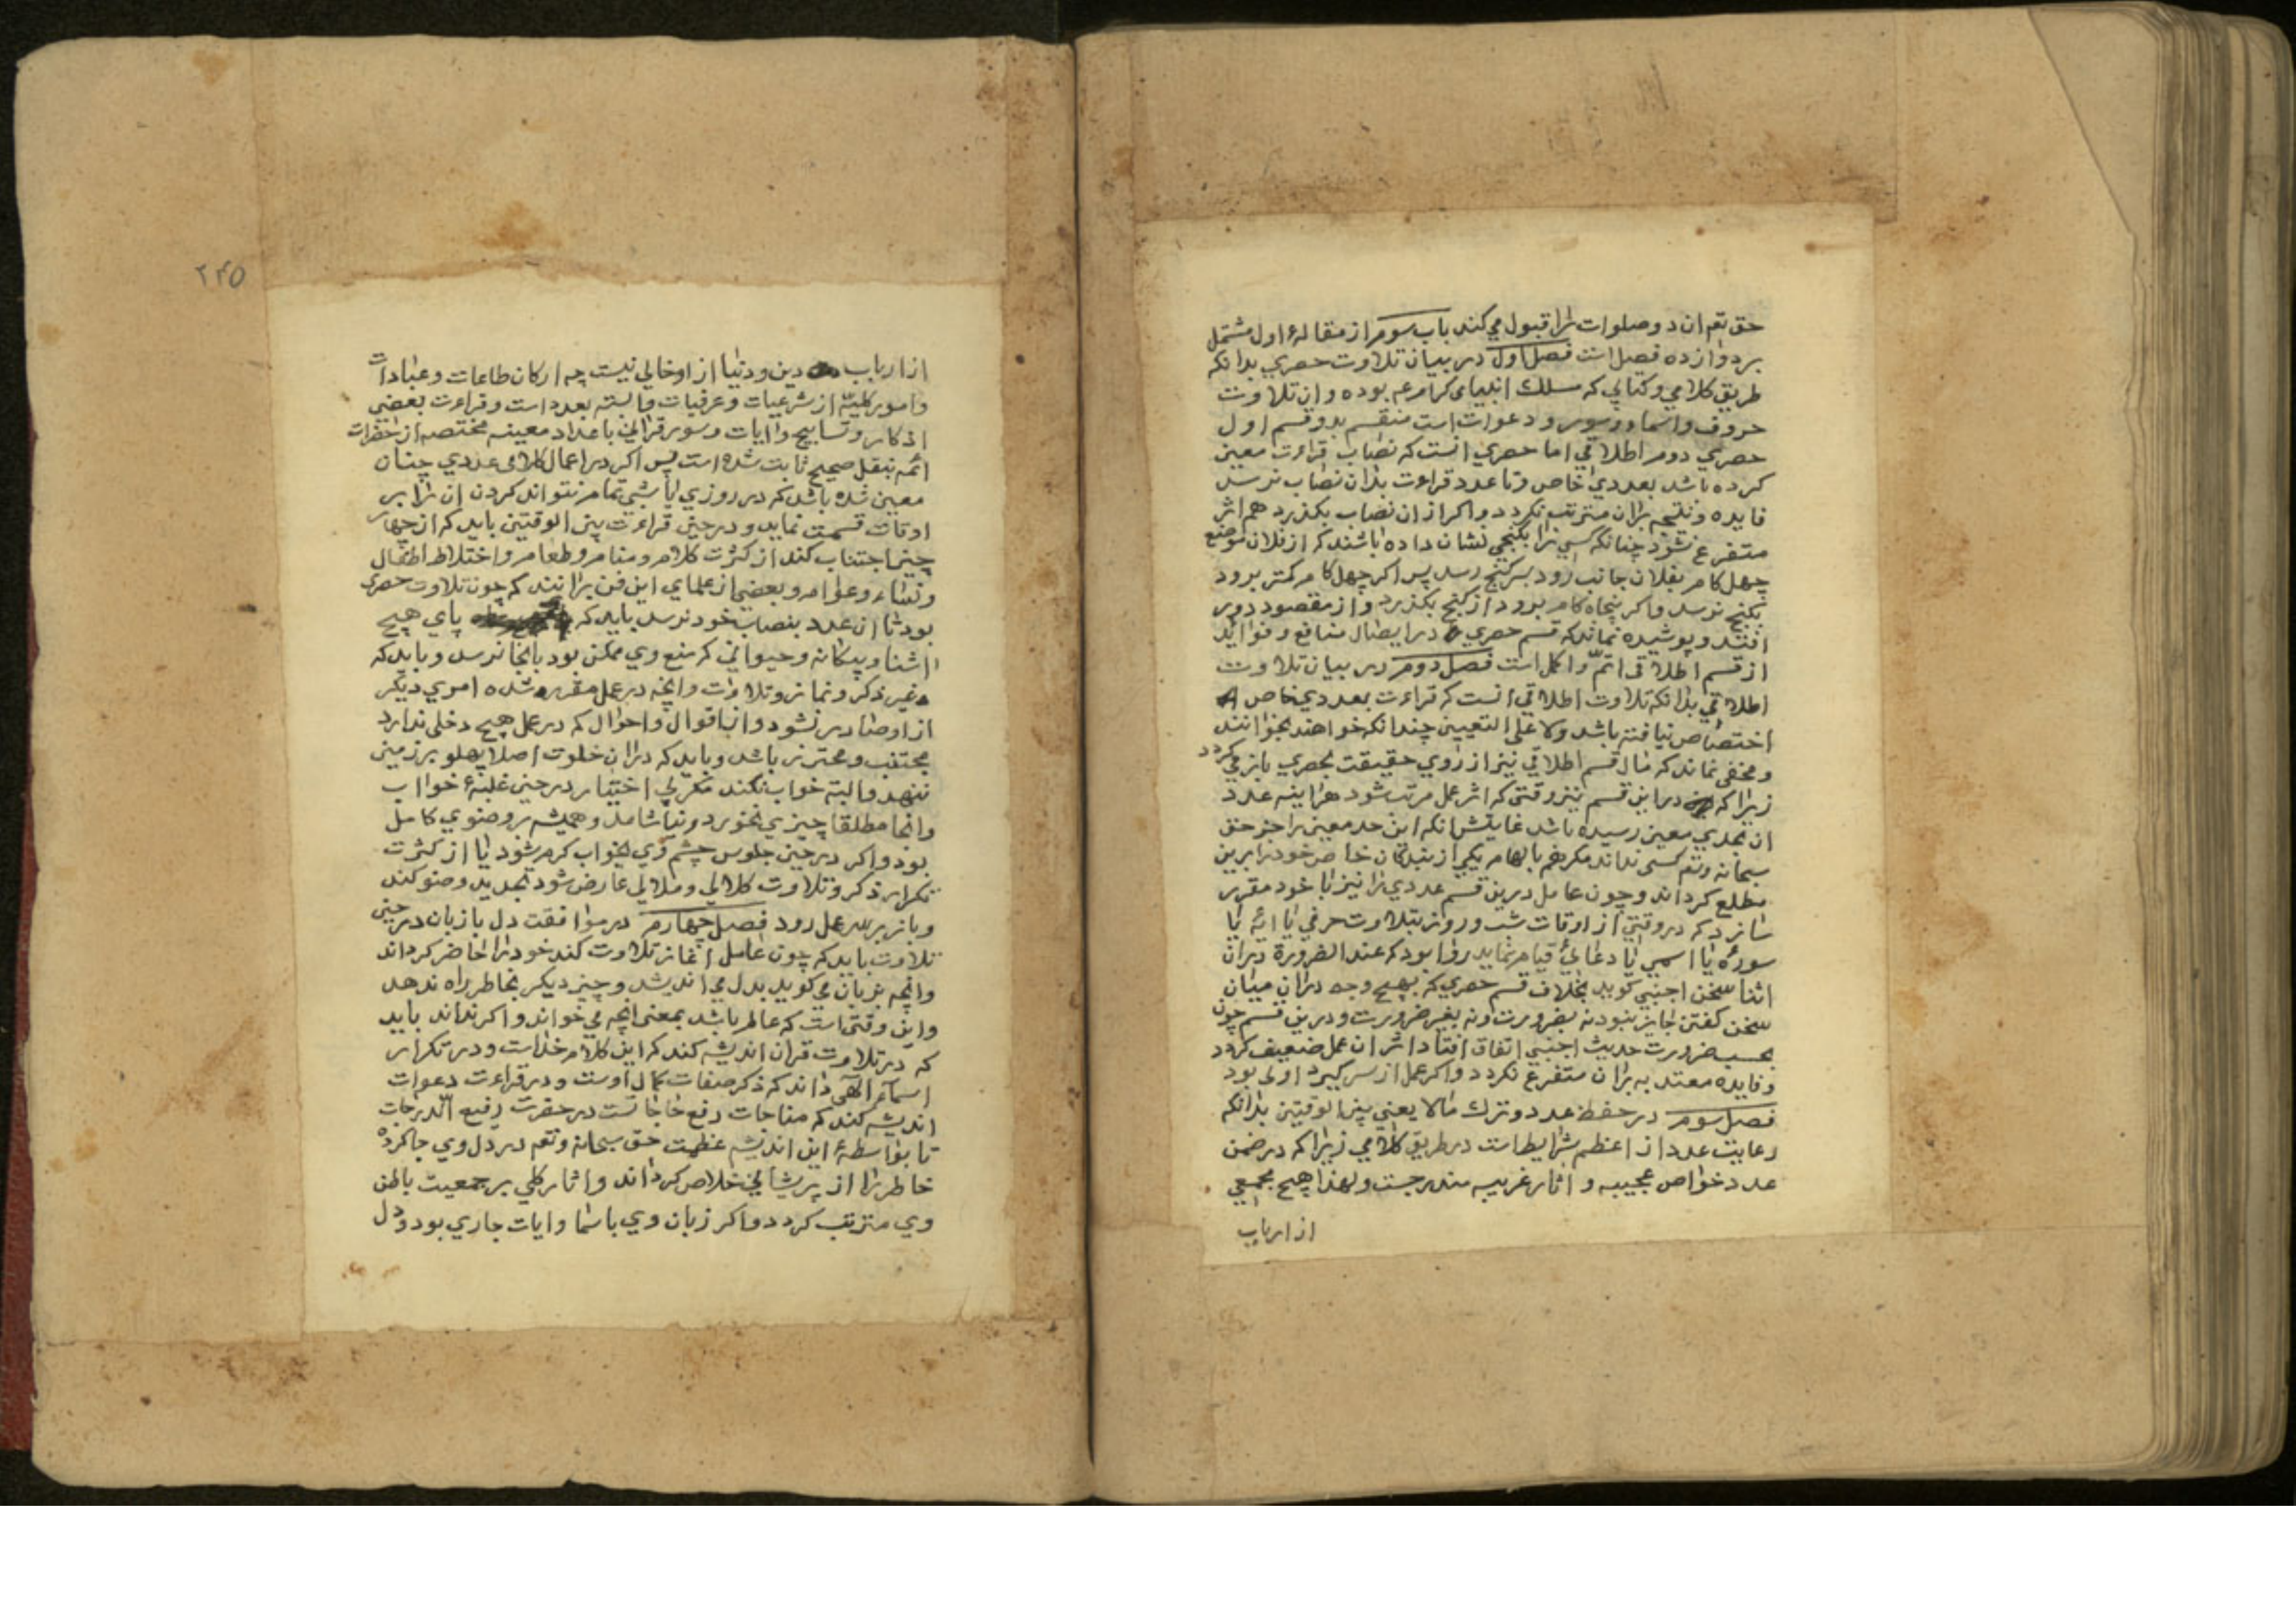 حق تعم ان دو صلوات ترا قبول می‌کند باب سوم از مقالهٔ اول مشتمل
بر دوازده فصل است فصل اول در بیان تلاوت حصری بدانکه
طریق کلامی و کتابی که مسلك انبیای کرام عم بوده و ان تلاوت
حروف و اسما و سور و دعوات است منقسم بدو قسم اول
حصری دوم اطلاقی اما حصری انست که نصاب قراءت معین
کرده باشد بعددی خاص و تا عدد قراءت بدان نصاب نرسد
فایده و نتیجه بران مترتب نکردد و اکر از ان نصاب بکذرد هم اثر
متفرع نشود چنانکه کسی را بکنجی نشان داده باشند که از فلان موضع
چهل کام بفلان جانب رود بسر کنج رسد پس اکر چهل کام کمتر برود
بکنج نرسد و اکر پنجاه کام برود از کنج بکذرد و از مقصود دور
افتد و پوشیده نماند که قسم حصری در ایصال منافع و فواید
از قسم اطلاقی اتمّ و اکمل است فصل دوم در بیان تلاوت
اطلاقی بدانکه تلاوت اطلاقی انست که قراءت بعددی خاص
اختصاص نیافته باشد ولا علی التعیین چندانکه خواهند بخوانند
و مخفی نماند که مال قسم اطلاقی نیز از روی حقیقت بحصری باز می کردد
زیرا که در این قسم نیز وقتی که اثر عمل مرتب شود هراینه عدد
ان بحدی معین رسیده باشد غایتش انکه این حد معین را جز حق
سبحانه وتعم کسی نداند مکر هم بالهام یکی از بندکان خاص خود را برین
مطلع کرداند و چون عامل درین قسم عددی را نیز با خود مقرر
سازد که در وقتی از اوقات شب و روز بتلاوت حرفی یا ایهٔ یا
سورهٔ یا اسمی یا دعائی قیام نماید روا بود که عند الضرورة دران
اثنا سخن اجنبی کوید بخلاف قسم حصری که بهیچ وجه دران میان
سخن کفتن جایز نبود نه بضرورت و نه بغیر ضرورت و درین قسم چون
بحسب ضرورت حدیث اجنبی اتفاق افتاد اثر ان عمل ضعیف کردد
و فایده معتد به بران متفرع نکردد و اکر عمل از سر کیرد اولی بود
فصل سوم در حفظ عدد و ترك مالا یعنی بین الوقتین بدانکه
رعایت عدد از اعظم شرایط است در طریق کلامی زیرا که در ضمن
عدد خواص عجیبه و اثار غریبه مندرجست ولهذا هیچ مجمعی
از ارباب
۲۴۵
از ارباب دین و دنیا از او خالی نیست چه ارکان طاعات و عبادات
و امور کلیّه از شرعیات و عرفیات وابسته بعدد است و قراءت بعضی
اذکار و تسابیح و ایات و سور قرانی باعداد معینه مختصه از حضرات
ائمه بنقل صحیح ثابت شده است پس اکر در اعمال کلامی عددی چنان
معین شده باشد که در روزی یا شبی تمام نتواند کردن ان را بر
اوقات قسمت نماید و در حین قراءت بین الوقتین باید که از چهار
چیز اجتناب کند از کثرت کلام و منام و طعام و اختلاط اطفال
و نساء و عوام و بعضی از علمای این فن برانند که چون تلاوت حصری
بود تا ان عدد بنصاب خود نرسد باید که پای هیچ
اشنا و بیکانه و حیوانی که منع وی ممکن بود بانجا نرسد و باید که
غیر ذکر و نماز و تلاوت و انچه در عمل مقرر شده امری دیکر
از او صادر نشود و از اقوال و احوال که در عمل هیچ دخلی ندارد
مجتنب و محترز باشد و باید که دران خلوت اصلا پهلو بر زمین
ننهد و البته خواب نکند مکر بی اختیار در حین غلبهٔ خواب
و انجا مطلقا چیزی نخورد و نیاشامد و همیشه بر وضوی کامل
بود و اکر در حین جلوس چشم وی بخواب کرم شود یا از کثرت
تکرار ذکر و تلاوت کلالی و ملالی عارض شود تجدید وضو کند
و باز بر سر عمل رود فصل چهارم در موافقت دل با زبان در حین
تلاوت باید که چون عامل اغاز تلاوت کند خود را حاضر کرداند
و انچه بزبان می کوید بدل می اندیشد و چیز دیکر بخاطر راه ندهد
و این وقتی است که عالم باشد بمعنی انچه می خواند و اکر نداند باید
که در تلاوت قران اندیشه کند که این کلام خداست و در تکرار
اسماء الهی داند که ذکر صفات کمال اوست و در قراءت دعوات
اندیشه کند که مناجات رفع حاجاتست در حضرت رفیع الدرجات
تا بواسطهٔ این اندیشه عظمت حق سبحانه وتعم در دل وی جا کرده
خاطر را از پریشانی خلاص کرداند و اثار کلی بر جمعیت باطن
وی مترتب کردد و اکر زبان وی باسما و ایات جاری بود و دل